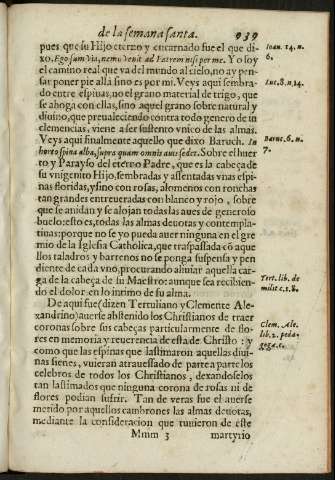 de la semana santa. 939
pues que su Hijo eterno y encarnado fue el que di-
xo. Ego sum via, nemo venit ad Patrem nisi per me. Yo soy
el camino real que va del mundo al cielo, no ay pen-
sar poner pie alla sino es por mi. Veys aqui sembra-
do entre espinas, no el grano material de trigo, que
se ahoga con ellas, sino aquel grano sobre natural y
diuino, que preualeciendo contra todo genero de in
clemencias, viene a ser sustento vnico de las almas.
Veys aqui finalmente aquello que dixo Baruch. In
horto spina alba, supra quam omnis auis sedet. Sobre el huer
to y Parayso del eterno Padre, que es la cabeça de
su vnigenito Hijo, sembradas y assentadas vnas espi-
nas floridas, y sino con rosas, alomenos con ronchas
tan grandes entreueradas con blanco y rojo, sobre
que se anidan y se alojan todas las aues de generoso
buelo: esto es, todas las almas deuotas y contempla-
tiuas: porque no se yo pueda auer ninguna en el gre
mio de la Iglesia Catholica, que traspassada cõ aque
llos taladros y barrenos no se ponga suspensa y pen
diente de cada vno, procurando aliuiar aquella car-
ga de la cabeça de su Maestro: aunque sea recibien-
do el dolor en lo intimo de su alma.
De aqui fue (dizen Tertuliano y Clemente Ale-
xandrino) auerse abstenido los Christianos de traer
coronas sobre sus cabeças particularmente de flo-
res en memoria y reuerencia de esta de Christo: y
como que las espinas que lastimaron aquellas diui-
nas sienes, vuieran atrauessado de parte a parte los
celebros de todos los Christianos, dexandoselos
tan lastimados que ninguna corona de rosas ni de
flores podian sufrir. Tan de veras fue el auerse
metido por aquellos cambrones las almas deuotas,
mediante la consideracion que tuuieron de este
Mmm 3 martyrio
Ioan. 14. n.
6.
Luc. 8. n 14.
Baruc. 6. n.
7.
Tert. lib. de
milit c. 1. &.
Clem. Ale.
lib. 2. peda-
goga c.